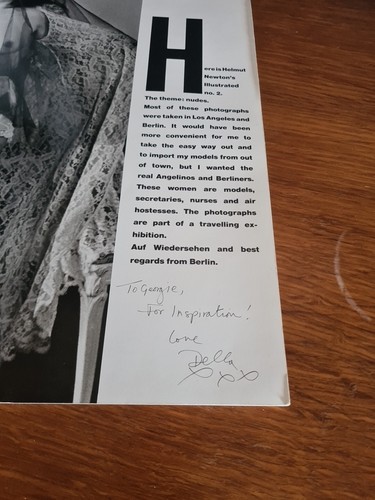 Here is Helmut
Newton's
Illustrated
no. 2.
The theme: nudes.
Most of these photographs
were taken in Los Angeles and
Berlin. It would have been
more convenient for me to
take the easy way out and
to import my models from out
of town, but I wanted the
real Angelinos and Berliners.
These women are models,
secretaries, nurses and air
hostesses. The photographs
are part of a travelling ex-
hibition.
Auf Wiedersehen and best
regards from Berlin.
To Georgie,
For Inspiration!
Love
Della
xxx